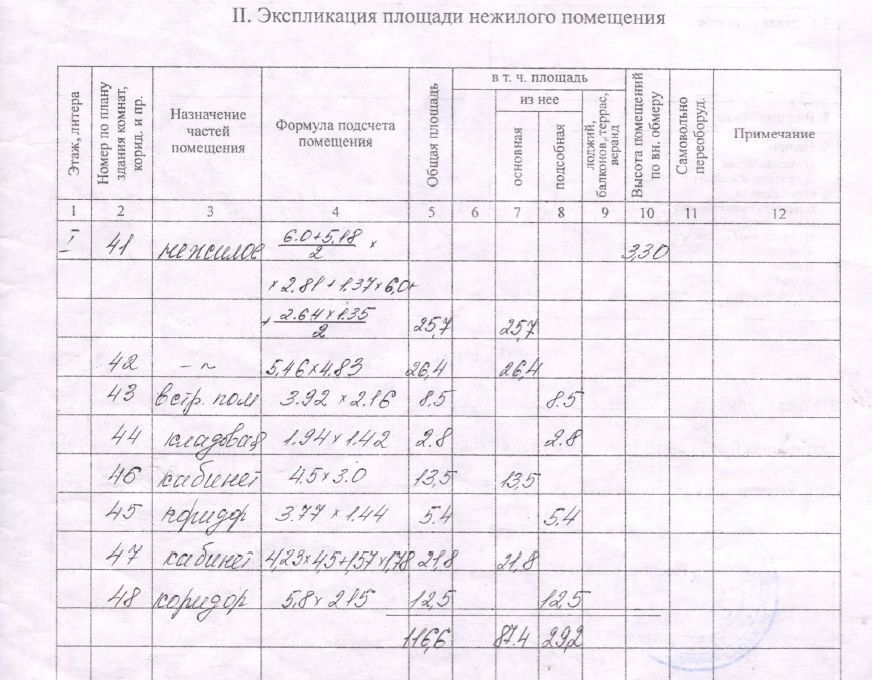 II. Экспликация площади нежилого помещения
Этаж, литера
Номер по плану здания комнат, корид. и пр.
Назначение частей помещения
Формула подсчета помещения
Общая площадь
в т. ч. площадь
из нее
основная
подсобная
лоджий, балконов, террас, веранд
Высота помещений по вн. обмеру
Самовольно переоборуд.
Примечание
1 2 3 4 5 6 7 8 9 10 11 12
I 41 нежилое (6.0+5,18)/2 × 3,30
× 2.81 + 1.37 × 6,0+
+ (2.64 × 1.35)/2 25,7 25,7
42 -"- 5,46 × 4,83 26,4 26,4
43 встр. пом 3.92 × 2.16 8.5 8.5
44 кладовая 1.94 × 1.42 2.8 2.8
46 кабинет 4.5 × 3.0 13,5 13,5
45 коридор 3.77 × 1.44 5.4 5.4
47 кабинет 4,23×4,5+1,57×1,78 21,8 21,8
48 коридор 5,8 × 2.15 12,5 12,5
116,6 87.4 29,2